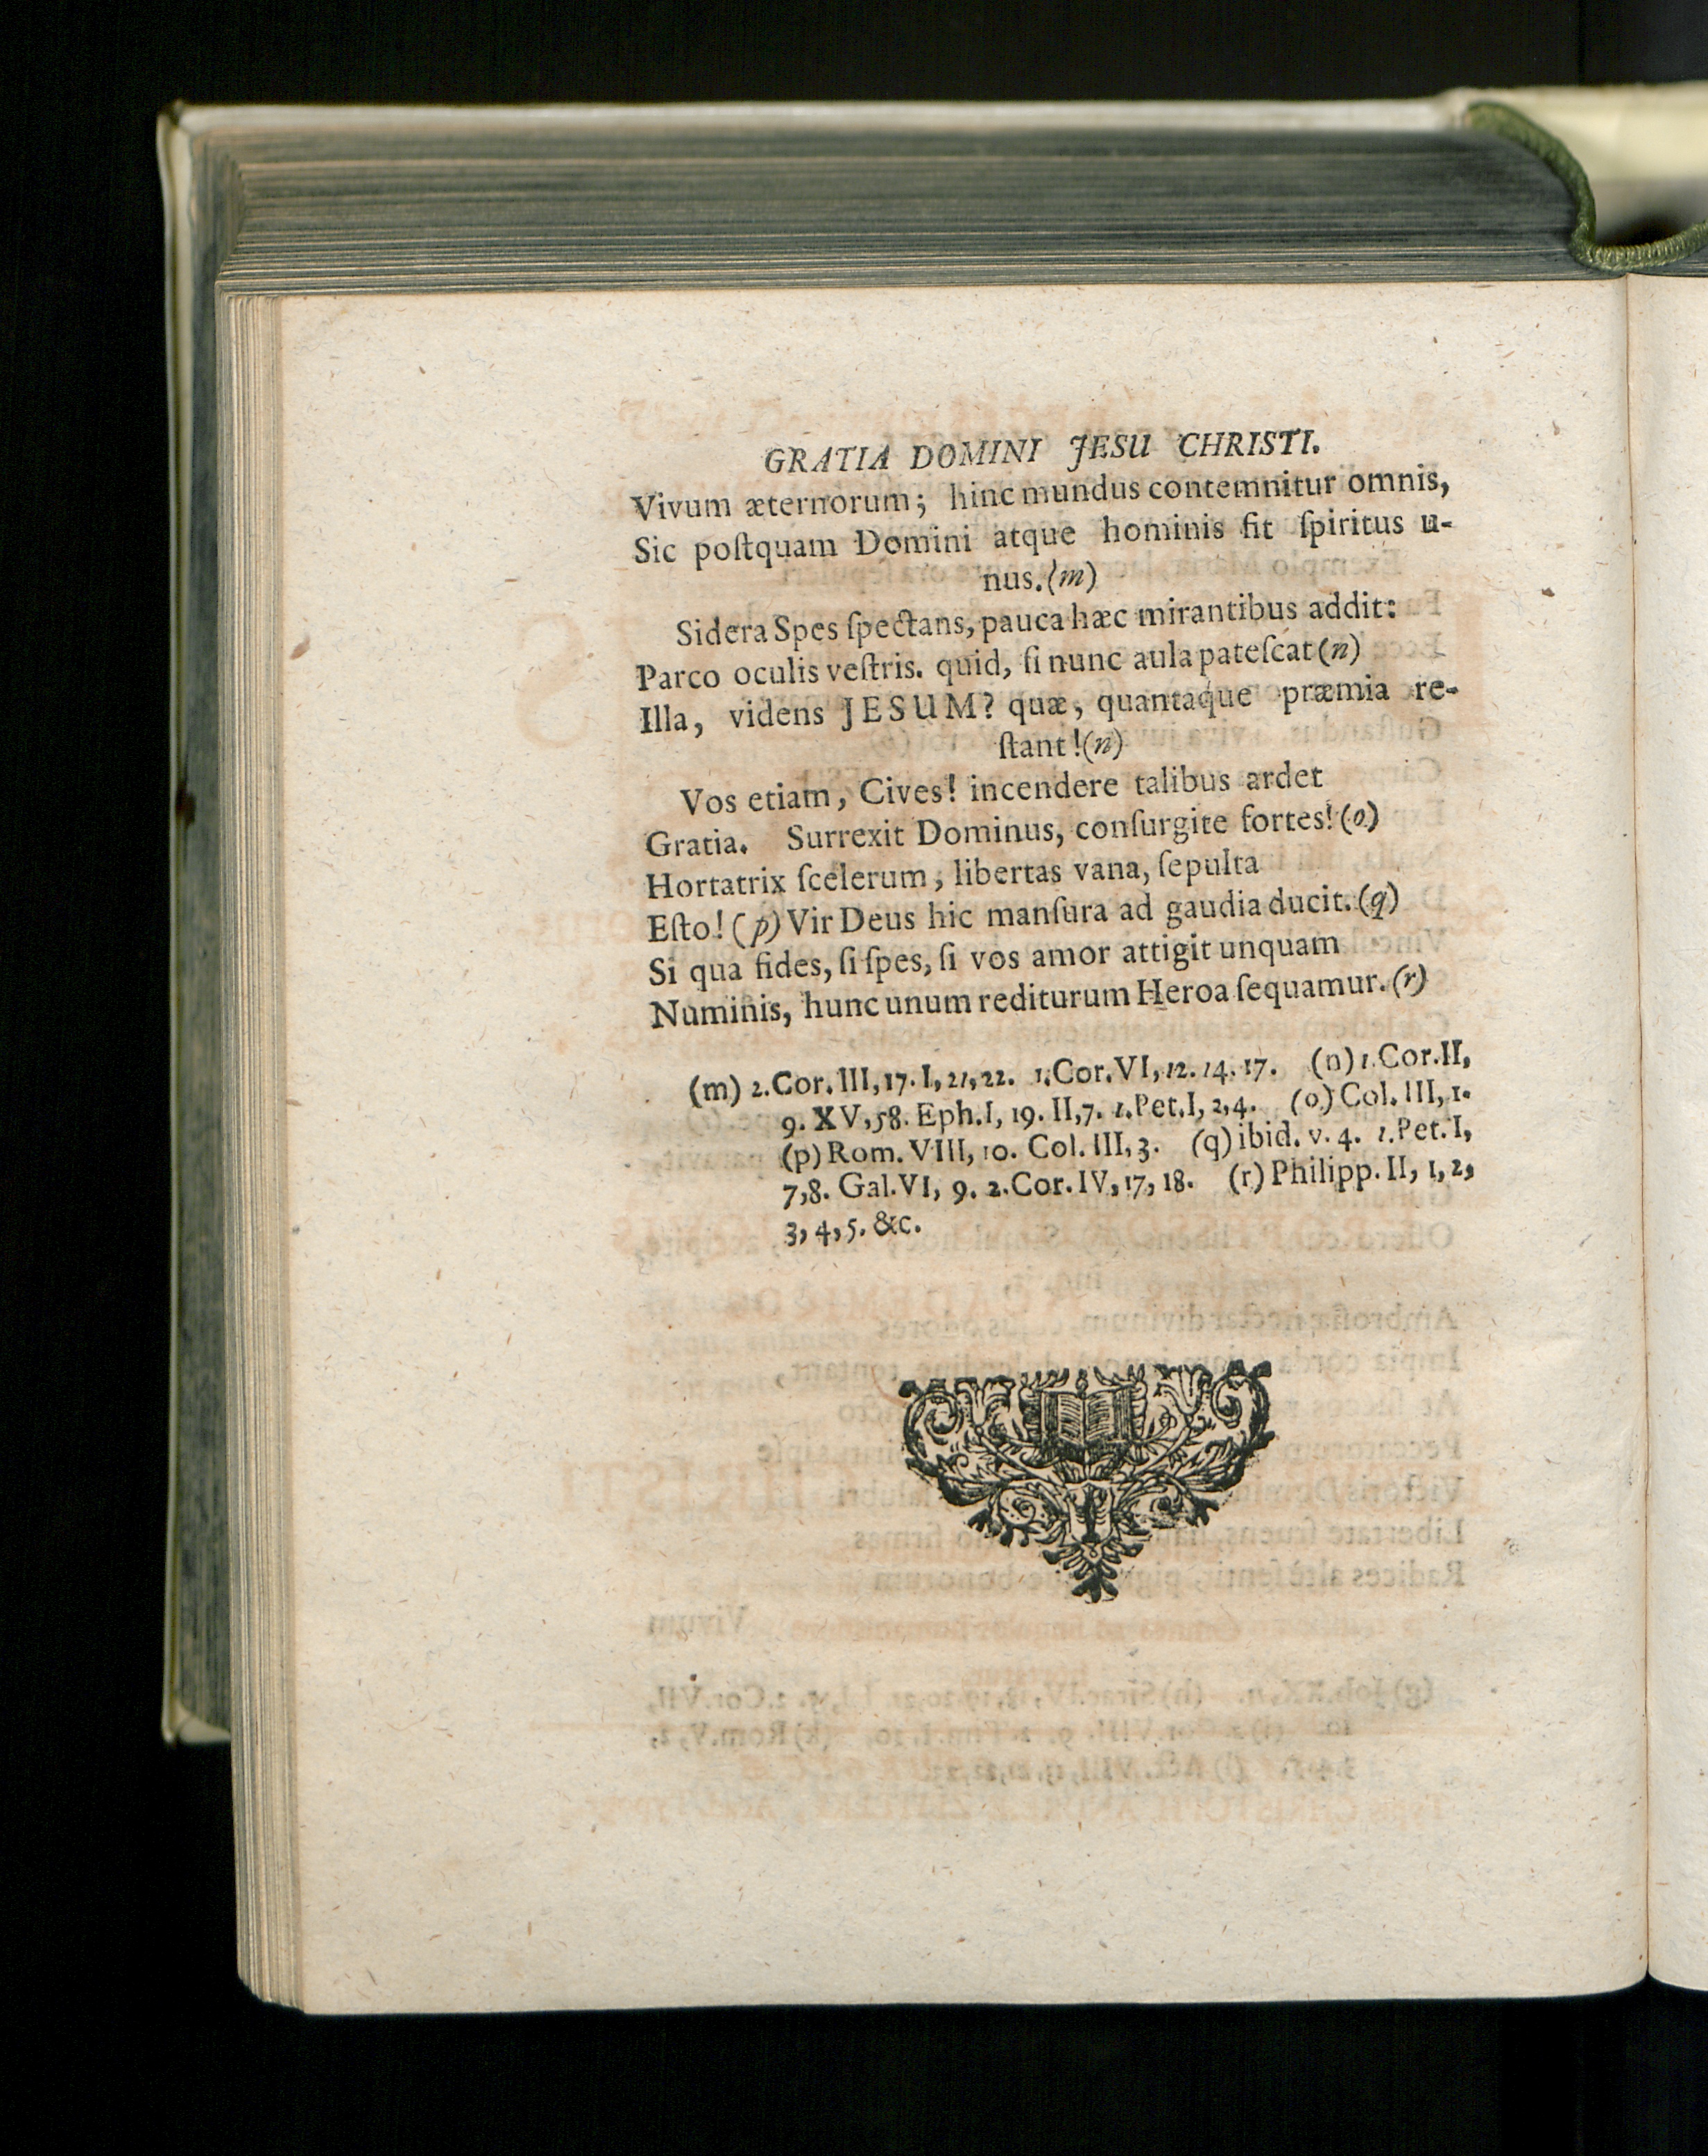 GRATIA DOMINI JESU CHRISTI.
Vivum æternorum; hinc mundus contemnitur omnis,
Sic poſtquam Domini atque hominis fit ſpiritus u-
nus. (m)
Sidera Spes ſpectans, pauca hæc mirantibus addit:
Parco oculis veſtris. quid, ſi nunc aula pateſcat (n)
Illa, videns JESUM? quæ, quantaque præmia re-
ſtant! (n)
Vos etiam, Cives! incendere talibus ardet
Gratia. Surrexit Dominus, conſurgite fortes! (o)
Hortatrix ſcelerum, libertas vana, ſepulta
Eſto! (p) Vir Deus hic manſura ad gaudia ducit. (q)
Si qua fides, ſi ſpes, ſi vos amor attigit unquam
Numinis, hunc unum rediturum Heroa ſequamur. (r)
(m) 2. Cor. III, 17. I, 21, 22. 1. Cor. VI, 12. 14. 17. (n) 1. Cor. II,
9. XV, 58. Eph. I, 19. II, 7. 1. Pet. I, 2, 4. (o) Col. III, 1.
(p) Rom. VIII, 10. Col. III, 3. (q) ibid. v. 4. 1. Pet. I,
7, 8. Gal. VI, 9. 2. Cor. IV, 17, 18. (r) Philipp. II, 1, 2,
3, 4, 5. &c.